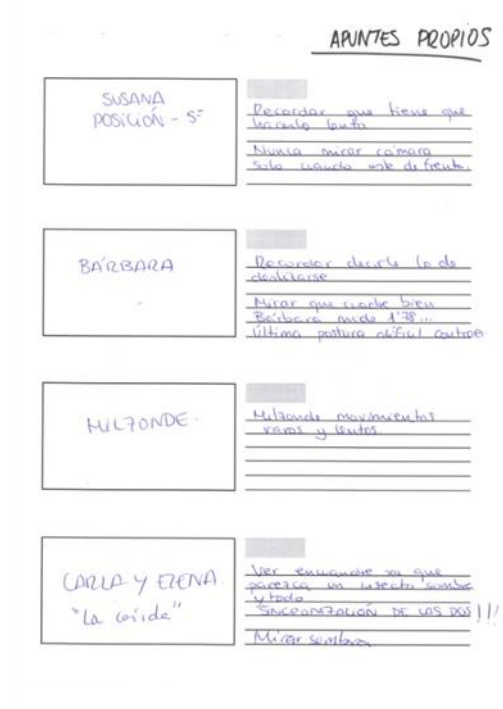 APUNTES PROPIOS
SUSANA
POSICIÓN - 5ª
Recordar que tiene que
hacerlo lento
Nunca mirar cámara
Solo cuando este de frente.
BÁRBARA
Recordar decirle lo de
deslizarse
Mirar que cuadre bien
Bárbara mide 1'78...
Última postura difícil
MILZONDE.
Milzonde movimientos
raros y lentos
CARLA Y ELENA
"La caída"
Ver encuadre xa que
parezca un insecto sombra
y todo
SINCRONIZACIÓN DE LAS DOS!!!
Mirar sombra